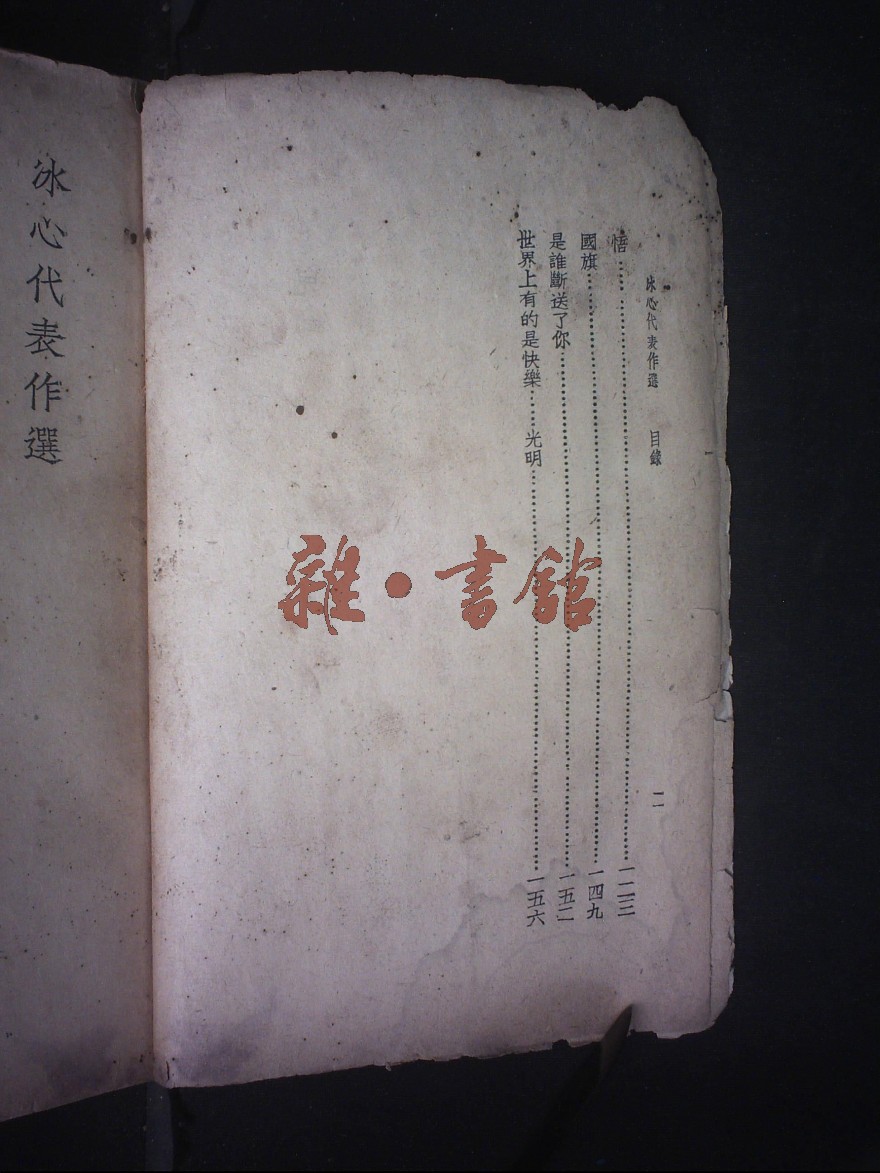 冰心代表作選 目錄 二
悟……………………一二三
國旗……………………一四九
是誰斷送了你……………………一五二
世界上有的是快樂……光明……………………一五六
冰心代表作選
雜·書館